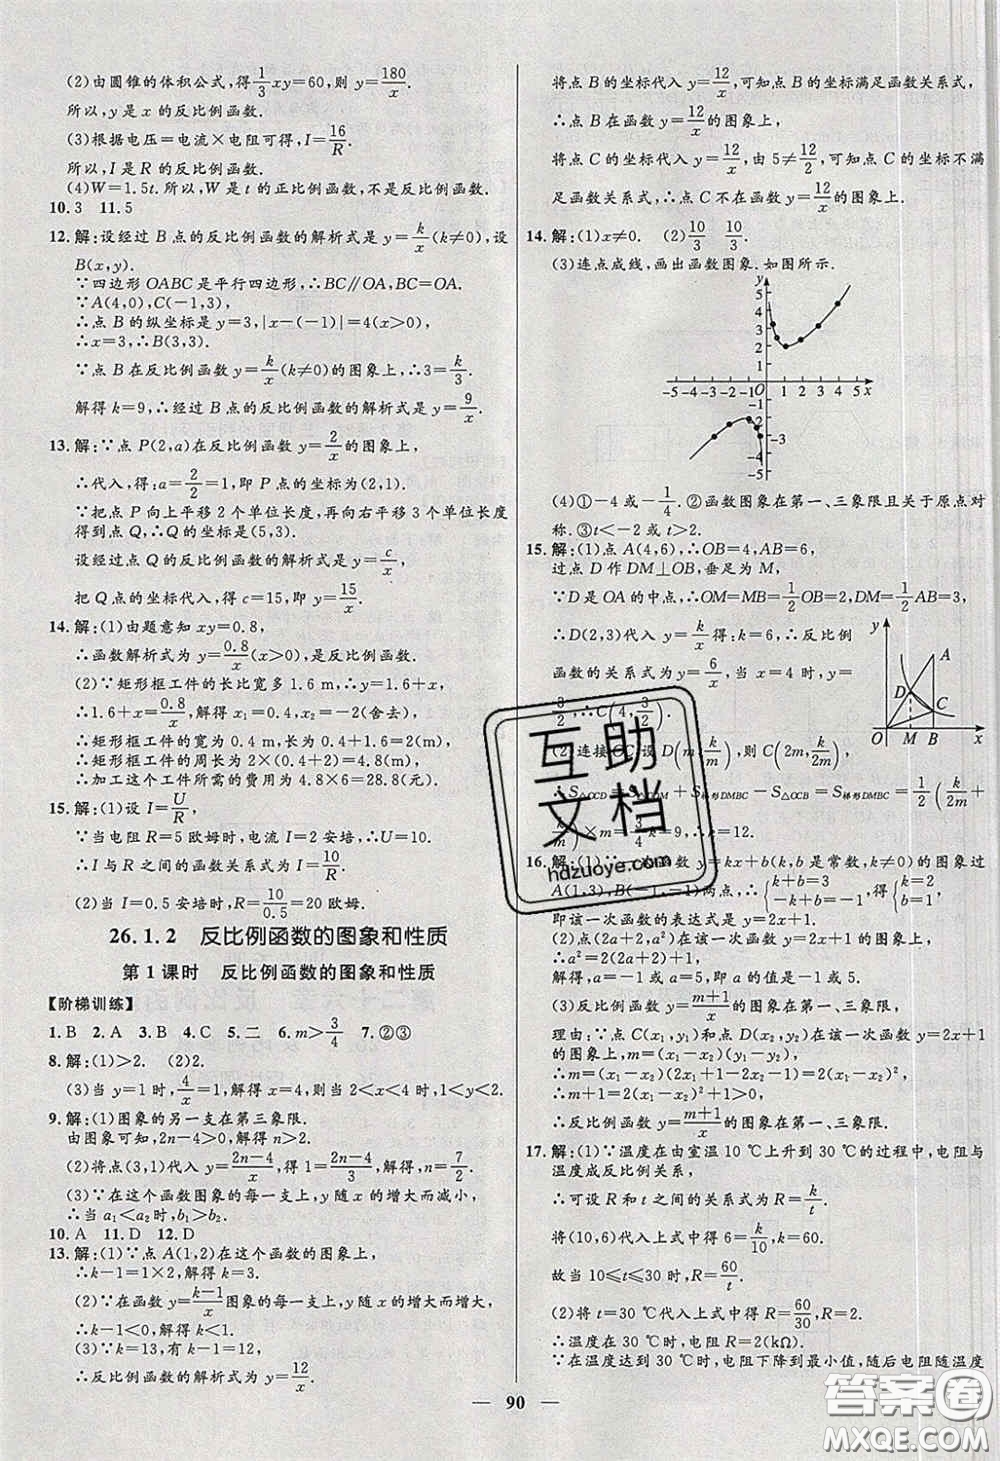 (2)由圆锥的体积公式,得1/3xy=60,则 y=180/x.
所以,y是x的反比例函数.
(3)根据电压=电流×电阻可得,I=16/R.
所以,I是R的反比例函数.
(4)W=1.5t.所以,W是t的正比例函数,不是反比例函数.
10.3 11.5
12.解:设经过B点的反比例函数的解析式是y=k/x(k≠0),设
B(x,y).
∵四边形OABC是平行四边形,∴BC∥OA,BC=OA.
∵A(4,0),C(-1,3),
∴点B的纵坐标是y=3,|x-(-1)|=4(x>0),
∴x=3,∴B(3,3).
∵点B在反比例函数y=k/x(k≠0)的图象上,∴3=k/3.
解得k=9,∴经过B点的反比例函数的解析式是y=9/x.
13.解:∵点P(2,a)在反比例函数y=2/x的图象上,
∴代入,得:a=2/2=1,即P点的坐标为(2,1).
∵把点P向上平移2个单位长度,再向右平移3个单位长度
得到点Q,∴Q的坐标是(5,3).
设经过点Q的反比例函数的解析式是y=c/x,
把Q点的坐标代入,得c=15,即y=15/x.
14.解:(1)由题意知xy=0.8,
∴函数解析式为y=0.8/x(x>0),是反比例函数.
(2)∵矩形框工件的长比宽多1.6 m,∴y=1.6+x,
∴1.6+x=0.8/x,解得x₁=0.4,x₂=-2(舍去),
∴矩形框工件的宽为0.4 m,长为1.6+0.4=2(m),
∴矩形框工件的周长为2×(2+0.4)=4.8(m),
∴加工这个工件所需的费用为4.8×6=28.8(元).
15.解:(1)设I=U/R,
∵当电阻R=5欧姆时,电流I=2安培,∴U=10.
∴I与R之间的函数关系式为I=10/R.
(2)当I=0.5安培时,R=10/0.5=20欧姆.
26.1.2 反比例函数的图象和性质
第1课时 反比例函数的图象和性质
【阶梯训练】
1.B 2.A 3.B 4.C 5.二 6.m>3/4 7.②③
8.解:(1)>2. (2)2.
(3)当y=1时,4/x=1,解得x=4,所以当2<x<4时,1<y<2.
9.解:(1)图象的另一支在第三象限.
由图象可知,2n-4>0,解得n>2.
(2)将点(3,1)代入y=2n-4/x,得1=2n-4/3,解得n=7/2.
(3)∵在这个函数图象的每一支上,y随x的增大而减小,
∴当a₁<a₂时,b₁>b₂.
10.A 11.D 12.D
13.解:(1)∵点A(1,2)在这个函数的图象上,
∴k-1=1×2,解得k=3.
(2)∵在函数y=k-1/x图象的每一支上,y随x的增大而增大,
∴k-1<0,解得k<1.
(3)∵k=13,有k-1=12,
∴反比例函数的解析式为y=12/x.
将点B的坐标代入y=12/x,可知点B的坐标满足函数关系式,
∴点B在函数y=12/x的图象上,
将点C的坐标代入y=12/x,由5≠12/2,可知点C的坐标不满
足函数关系式,∴点C不在函数y=12/x的图象上.
14.解:(1)x≠0. (2)10/3 10/3
(3)连点成线,画出函数图象.如图所示.
y
5
4
3
2
1
-5 -4 -3 -2 -1 O 1 2 3 4 5 x
-1
-2
-3
-4
-5
(4)①-4或-1/4. ②函数图象在第一、三象限且关于原点对
称.③t<-2或t>2.
15.解:(1)点A(4,6),∴OB=4,AB=6,
过点D作DM⊥OB,垂足为M,
∵D是OA的中点,∴OM=MB=1/2OB=2,DM=1/2AB=3,
∴D(2,3)代入y=k/x得:k=6,∴反比例
函数的关系式为y=6/x,当x=4时,y=
3/2,∴C(4,3/2).
(2)连接OC,设D(m,k/m),则C(2m,k/2m),
y A D C O M B x
∴S△OCD=S△ODM+S梯形DMBC-S△OCB=S梯形DMBC=1/2(k/2m+
k/m)×m=3/4k=9,∴k=12.
16.解:(1)∵一次函数y=kx+b(k,b是常数,k≠0)的图象过
A(1,3),B(-1,-1)两点,∴{k+b=3 -k+b=-1,得{k=2 b=1,
即该一次函数的表达式是y=2x+1.
(2)点(2a+2,a²)在该一次函数y=2x+1的图象上,
∴a²=2(2a+2)+1,解得a=-1或a=5.
(3)反比例函数y=m+1/x的图象在第一、三象限,
理由:∵点C(x₁,y₁)和点D(x₂,y₂)在该一次函数y=2x+1
的图象上,∴m=(x₁-x₂)(y₁-y₂)
=(x₁-x₂)(2x₁+1-2x₂-1)=2(x₁-x₂)²,
∴m+1=2(x₁-x₂)²+1>0,
∴反比例函数y=m+1/x的图象在第一、三象限.
17.解:(1)∵温度在由室温10 ℃上升到30 ℃的过程中,电阻与
温度成反比例关系,
∴可设R和t之间的关系式为R=k/t,
将(10,6)代入上式中得6=k/10,k=60.
故当10≤t≤30时,R=60/t.
(2)将t=30 ℃代入上式中得R=60/30,R=2.
∴温度在30 ℃时,电阻R=2(kΩ).
∵在温度达到30 ℃时,电阻下降到最小值,随后电阻随温度
90
互助
文档
hdzuoye.com
答案圈
MXQE.COM